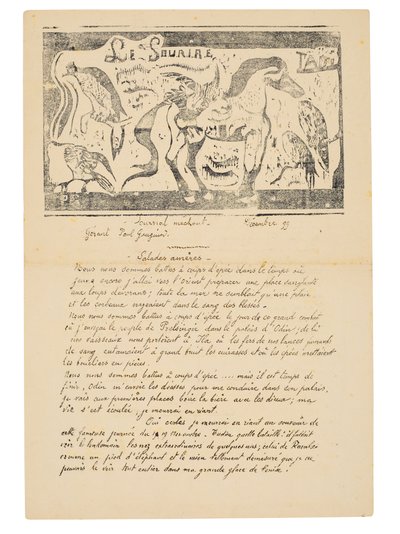 LE SOURIRE
TAÏTI
Journal méchant.
Décembre 99
Gérant Paul Gauguin.
Salades amères
Nous nous sommes battus à coups d'épée dans le temps où
jeune encore j'allai vers l'orient préparer une place
aux loups dévorants; toute la mer ne semblait qu'une plaie
et les corbeaux nageaient dans le sang des blessés.
Nous nous sommes battus à coups d'épée le jour de ce grand combat
où j'envoyai le peuple de dans le palais d'Odin; de là
nos vaisseaux nous portèrent à Ila où les fers de nos lances fumants
de sang entamaient à grand bruit les cuirasses et où les épées mettaient
les boucliers en pièces.
Nous nous sommes battus à coups d'épée .... mais il est temps de
finir, Odin m'envoie les déesses pour me conduire dans son palais,
je vais aux premières places boire la bière avec les dieux; ma
vie s'est écoulée, je mourrai en riant.
Oui certes je mourrai en riant au souvenir de
cette fameuse journée du 19 Novembre. quelle bataille! il fallait
voir le lendemain les nez extraordinaires de quelques uns; celui de
comme un pied d'éléphant et le mien tellement démesuré que je ne
pouvais le voir tout entier dans ma grande glace de Venise.